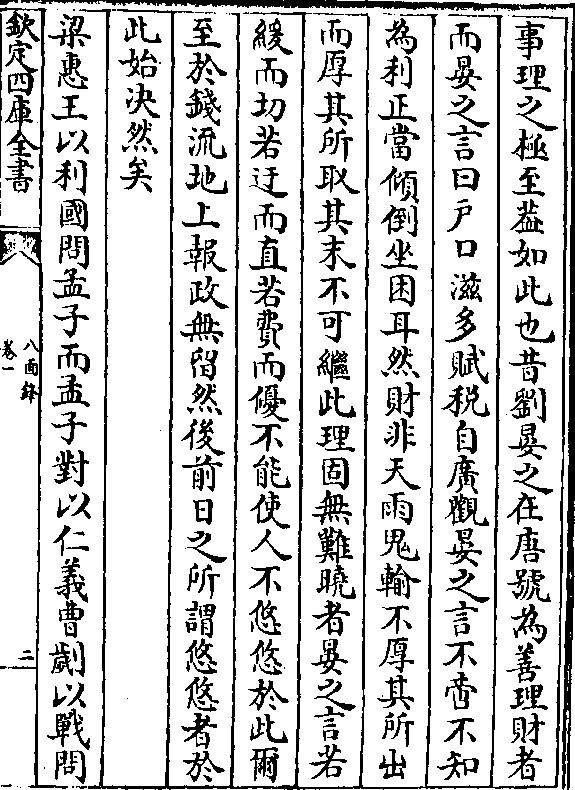 事理之極至葢如此也昔劉晏之在唐號為善理財者
而晏之言曰戶口滋多賦稅自廣觀晏之言不啻不知
為利正當傾倒坐困耳然財非天雨鬼輸不厚其所出
而厚其所取其末不可繼此理固無難曉者晏之言若
緩而切若迂而直若費而優不能使人不悠悠於此爾
至於錢流地上報政無留然後前日之所謂悠悠者於
此始決然矣
梁惠王以利國問孟子而孟子對以仁義曹劌以戰問
欽定四庫全書
八面鋒
卷一
二